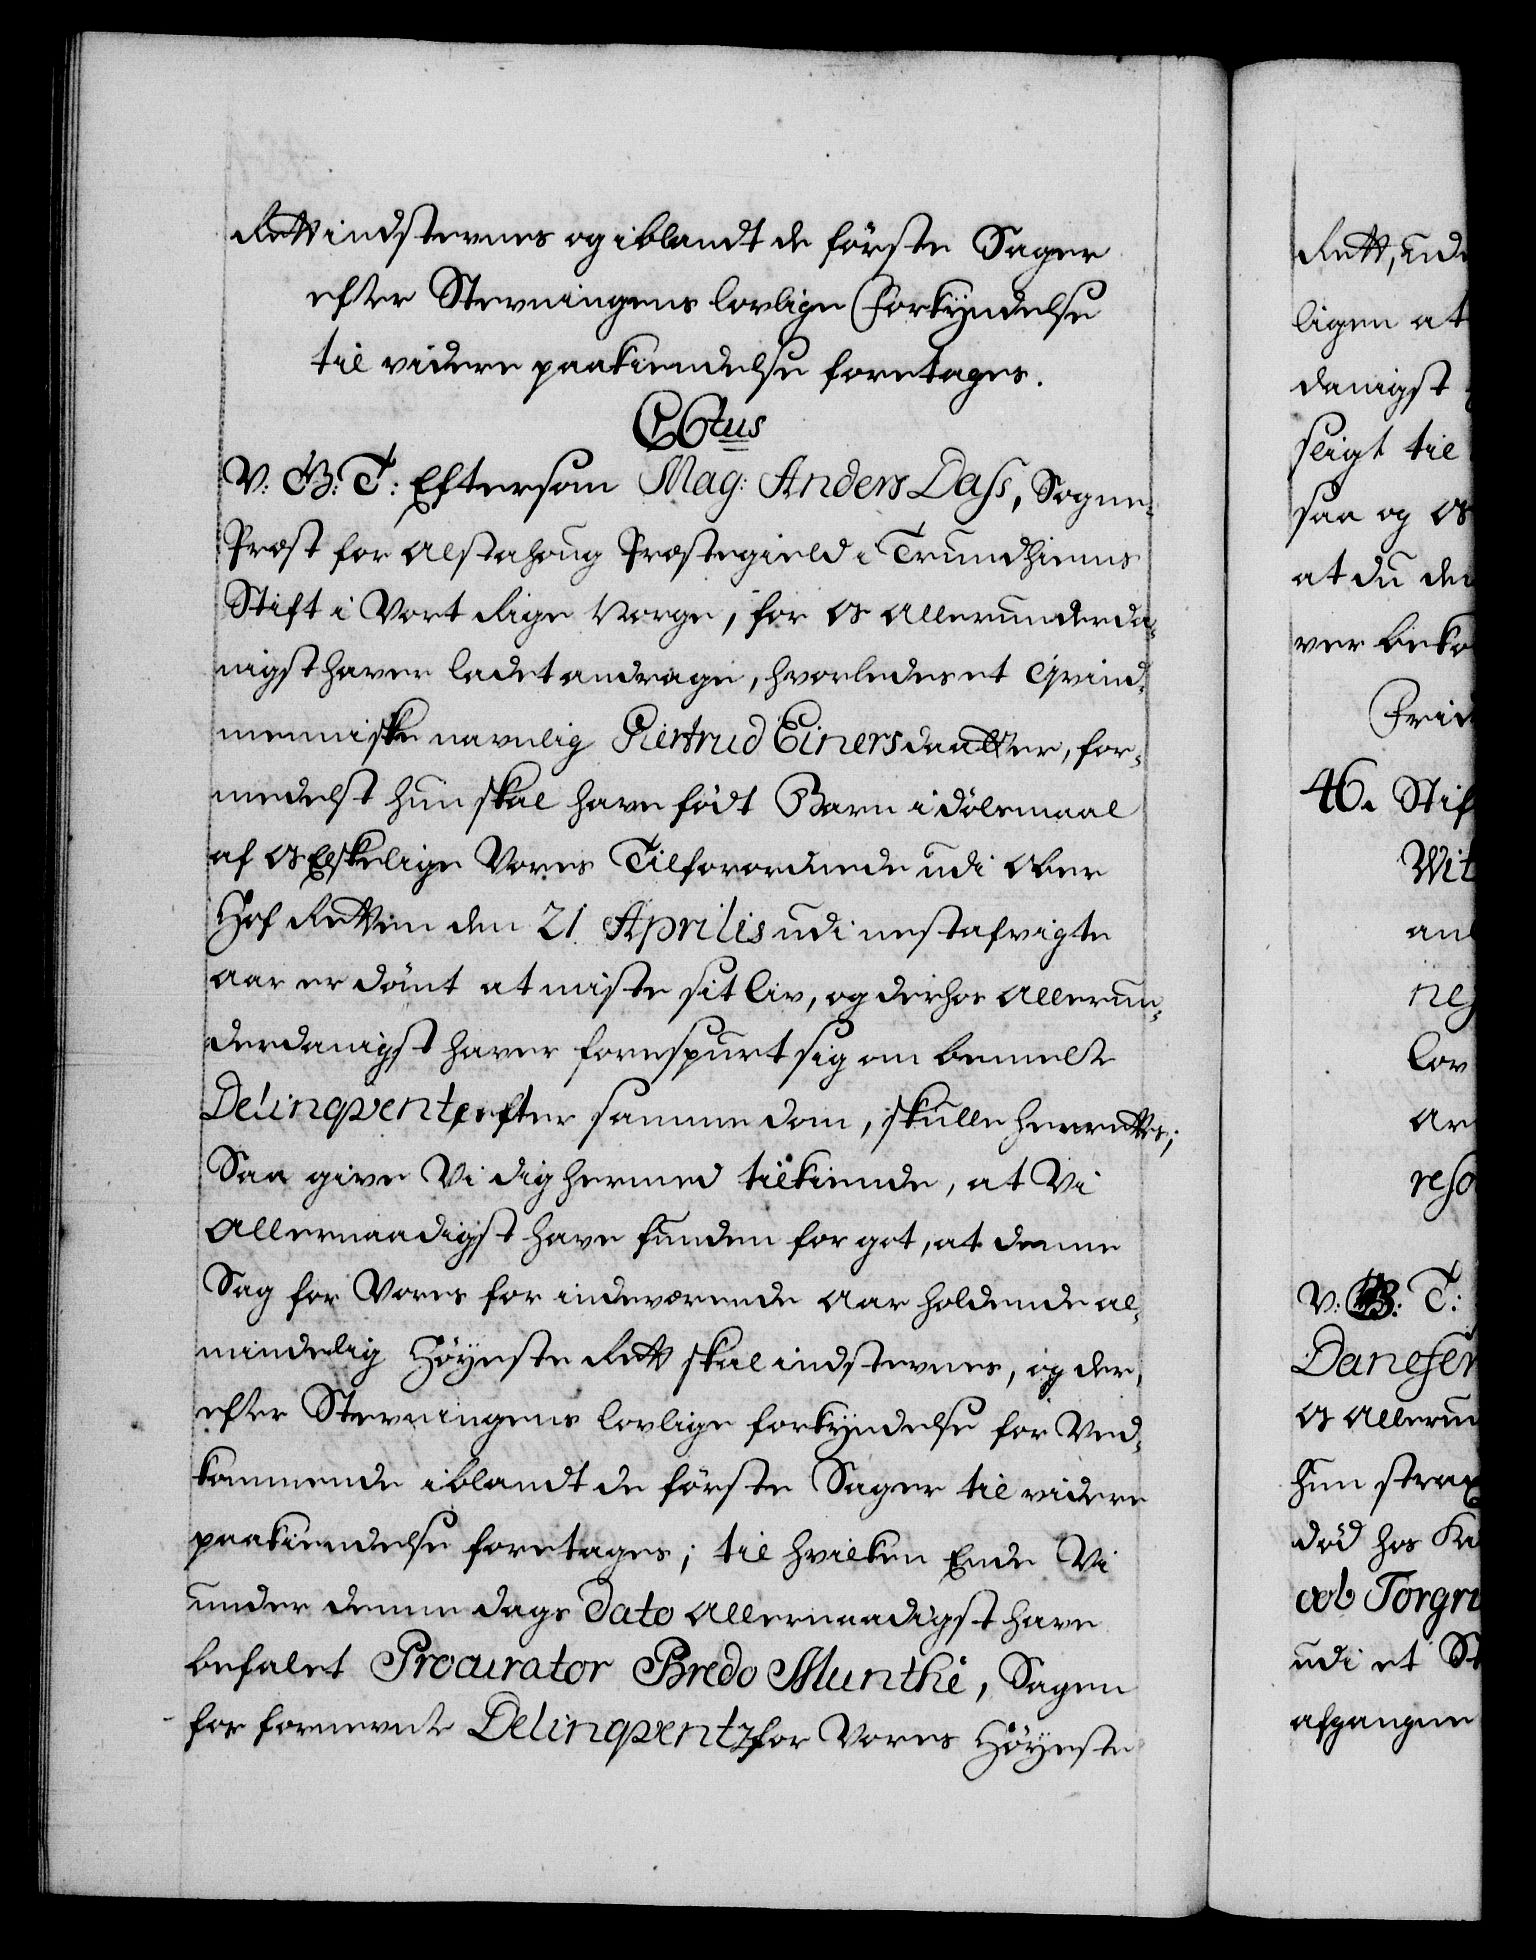 Rett indstevnes og iblandt de förste Sager
efter Stevningens lovlige Forkyndelse
til videre paakiendelse foretages.
V: G: T: Eftersom Mag: Anders Dass, Sogne-
Præst for Alstahoug Præstegield i Trundhiems
Stift i Vort Rige Norge, for Os Allerunderda-
nigst haver ladet andrage, hvorledes et Qvind-
menniske navnlig Giertrud Einersdaatter, for-
medelst hun skal have födt Barn i dölsmaal
af Os Elskelige Vores Tilforordnede udi Ober
Hof Retten den 21 Aprilis udi nestafvigte
Aar er dömt at miste sit liv, og derhos Allerun-
derdanigst haver forespurt sig om bemelte
Delinqvent efter samme dom, skulle henrettes;
Saa give Vi dig hermed tilkiende, at Vi
Allernaadigst have funden for got, at denne
Sag for Vores for indeværende Aar holdende al-
mindelig Höyeste Rett skal indstevnes, og der,
efter Stevningens lovlige forkyndelse for Ved-
kommende iblandt de förste Sager til videre
paakiendelse foretages; til hvilken Ende Vi
under denne dags Dato Allernaadigst have
befalet Procurator Bredo Munthe, Sagen
for fornevnte Delinqvent for Vores Höyeste
Rett, ude
ligen at
danigst
seigt til
saa og Os
at du den
ver beko
Frid
46. Stif
Wit
lov
Ar
reso
V: G: T:
Danefer
Os Allerun
hun strax
död hos
cob Torgri
udi et St
afgangne